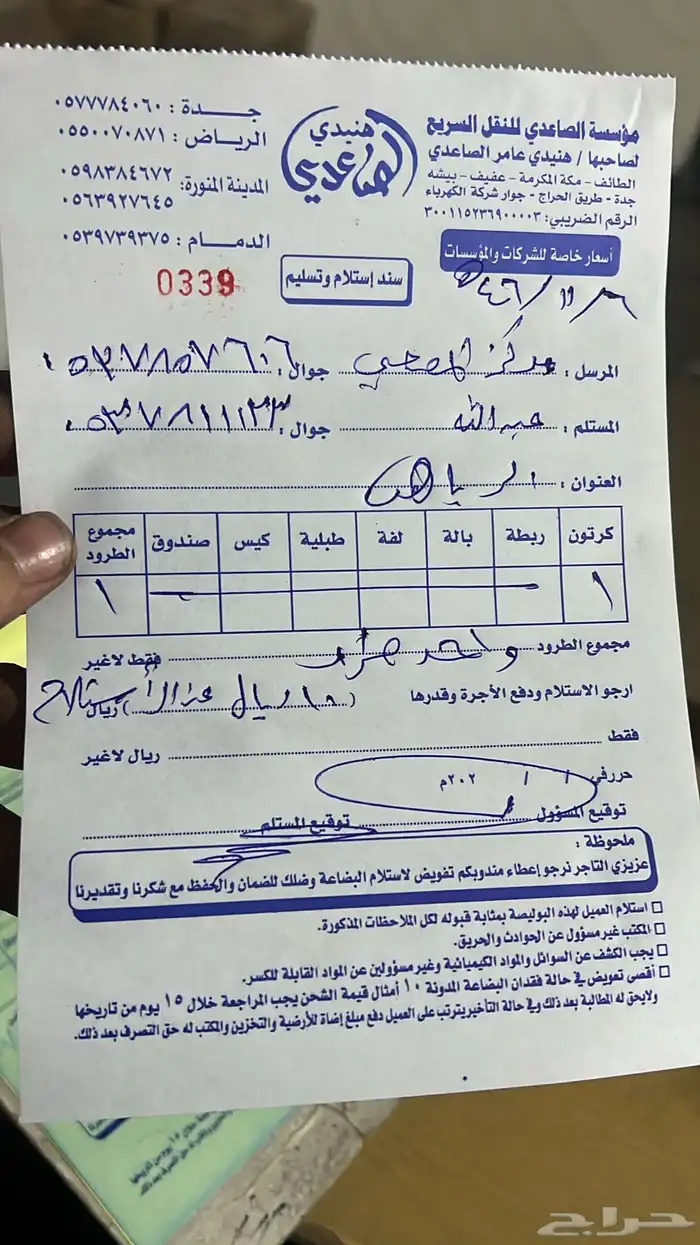 مؤسسة الصاعدي للنقل السريع
لصاحبها / هنيدي عامر الصاعدي
الطائف - مكة المكرمة - عفيف - بيشه
جدة - طريق الحراج - جوار شركة الكهرباء
الرقم الضريبي: ٣٠٠١١٥٢٣٦٩٠٠٠٠٣
أسعار خاصة للشركات والمؤسسات
هنيدي
الصاعدي
جـــدة : ٠٥٧٧٧٨٤٠٦٠
الرياض : ٠٥٥٠٠٧٠٨٧١
المدينة المنورة: ٠٥٩٨٣٨٤٦٧٢
٠٥٦٣٩٢٧٦٤٥
الدمام : ٠٥٣٩٧٣٩٣٧٥
0339
سند إستلام وتسليم
٦ / ١١ / ٤٦
المرسل : مركز جوال : ٠٥٣٧٨٥٧٦٠٦
المستلم : عبدالله جوال : ٠٥٣٧٨١١١٢٣
العنوان : الرياض
كرتون ربطة بالة لفة طبلية كيس صندوق مجموع الطرود
١ ١
مجموع الطرود واحد فقط لاغير
ارجو الاستلام ودفع الأجرة وقدرها ( ١٠ ريال عند الأستلام ) ريال
فقط ريال لاغير
حررفي / / ٢٠٢م
توقيع المسؤول توقيع المستلم
ملحوظة :
عزيزي التاجر نرجو إعطاء مندوبكم تفويض لاستلام البضاعة وضلك للضمان والحفظ مع شكرنا وتقديرنا
استلام العميل لهذه البوليصة بمثابة قبوله لكل الملاحظات المذكورة.
المكتب غير مسؤول عن الحوادث والحريق.
يجب الكشف عن السوائل والمواد الكيميائية وغير مسؤولين عن المواد القابلة للكسر.
أقصى تعويض في حالة فقدان البضاعة المدونة ١٠ أمثال قيمة الشحن يجب المراجعة خلال ١٥ يوم من تاريخها
ولايحق له المطالبة بعد ذلك وفي حالة التأخير يترتب على العميل دفع مبلغ إضافة للأرضية والتخزين والمكتب له حق التصرف بعد ذلك.
حراج